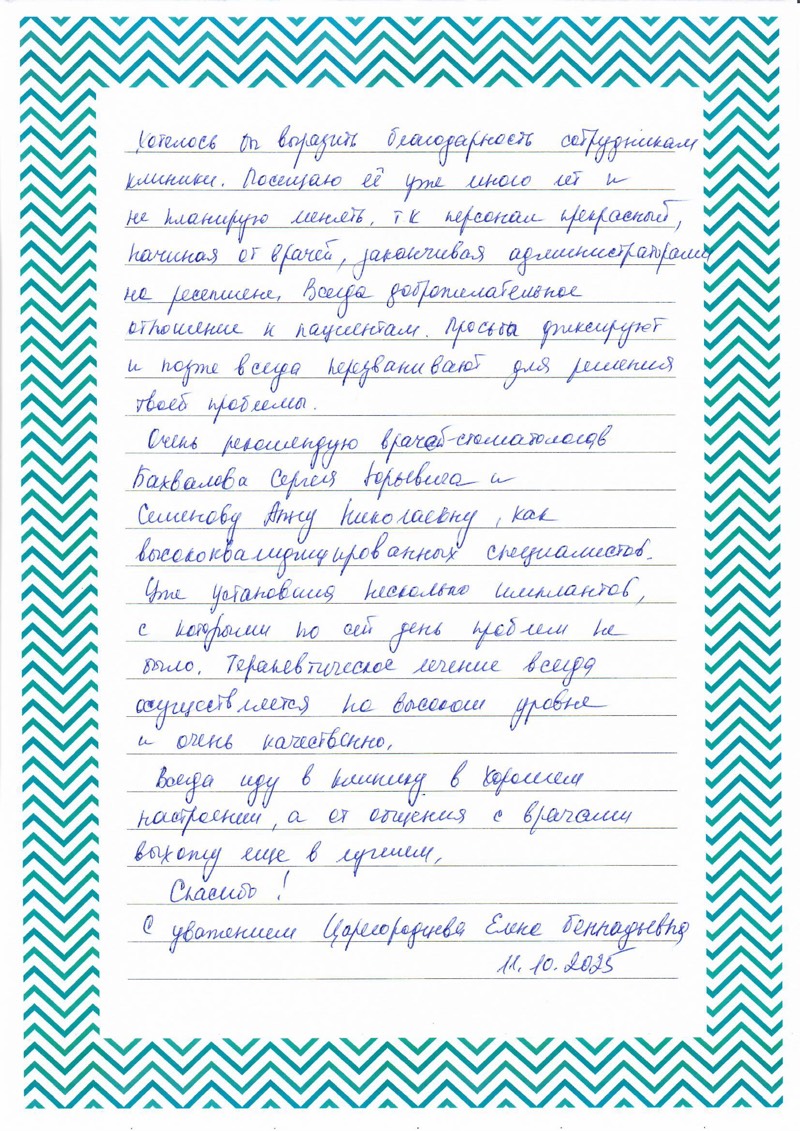 Хотелось бы выразить благодарность сотрудникам
клиники. Посещаю её уже много лет и
не планирую менять, т к персонал прекрасный,
начиная от врачей, заканчивая администраторами
на ресепшене. Всегда доброжелательное
отношение к пациентам. Просьбы фиксируют
и позже всегда перезванивают для решения
твоей проблемы.
Очень рекомендую врачей-стоматологов
Бахвалова Сергея Юрьевича и
Семенову Анну Николаевну, как
высококвалифицированных специалистов.
Уже установила несколько имплантов,
с которыми по сей день проблем не
было. Терапевтическое лечение всегда
осуществляется на высоком уровне
и очень качественно.
Всегда иду в клинику в хорошем
настроении, а от общения с врачами
выхожу еще в лучшем.
Спасибо!
С уважением Царегородцева Елена Геннадьевна
11.10.2025